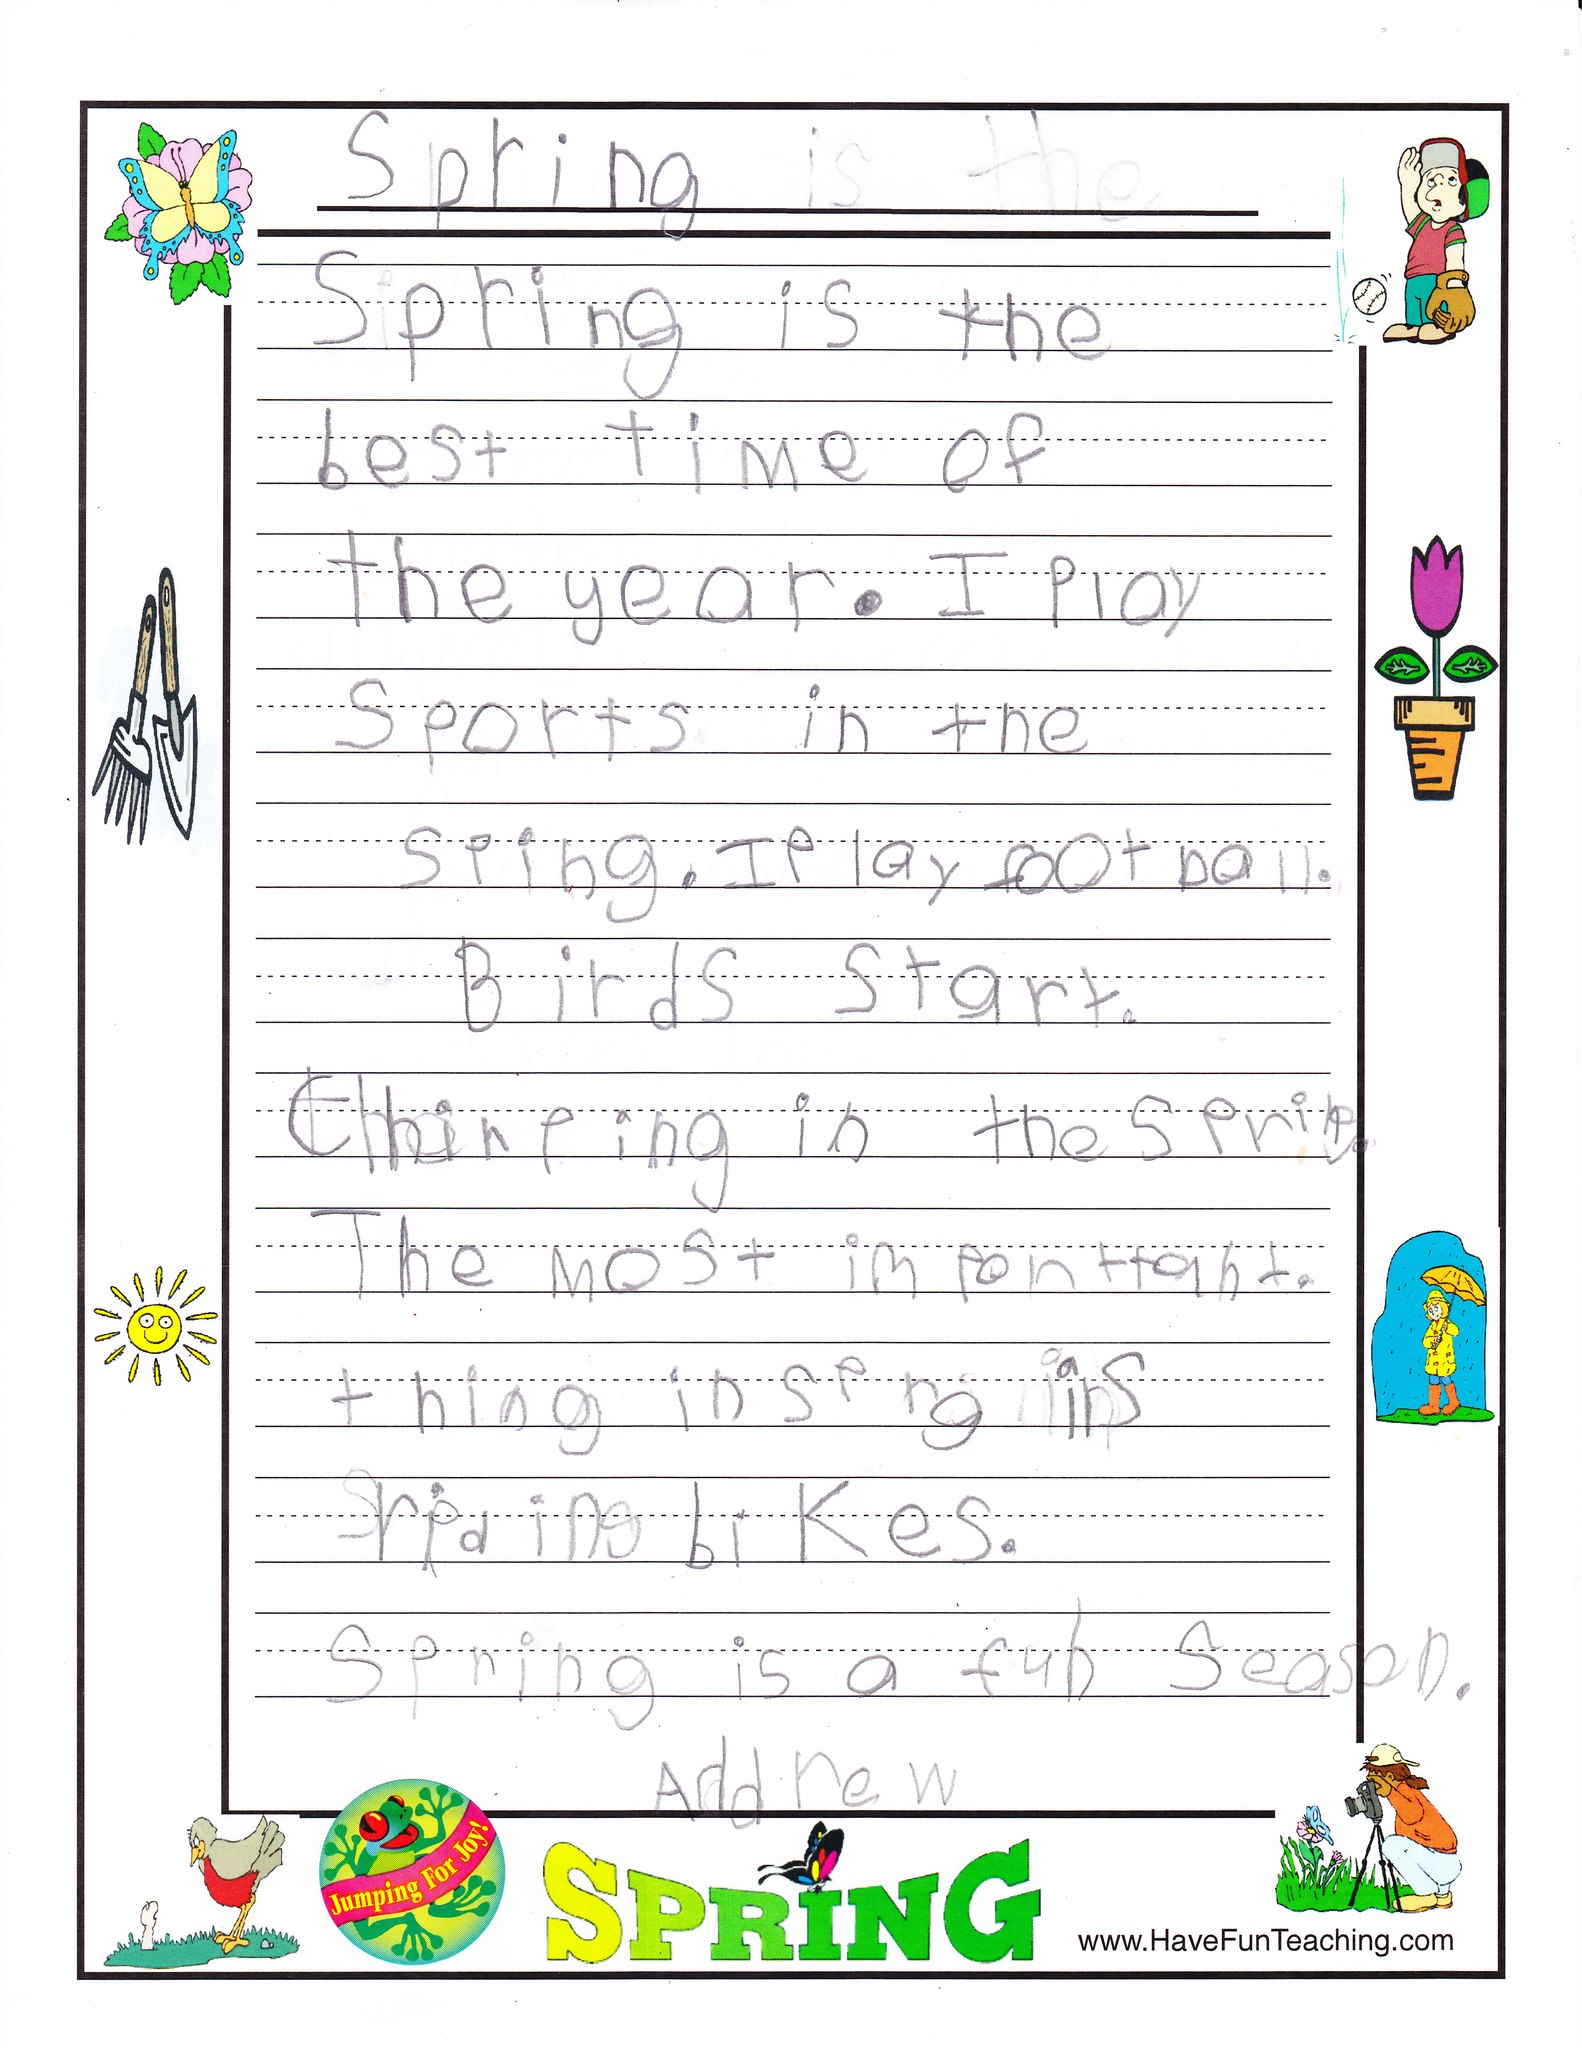 Spring is the
Spring is the
best time of
the year. I play
Sports in the
Sping. I play football.
Birds start.
Chirping in the Spring.
The most importtant.
thing in sprng is
riding bikes.
Spring is a fun Season.
Andrew
Jumping For Joy!
SPRING
www.HaveFunTeaching.com